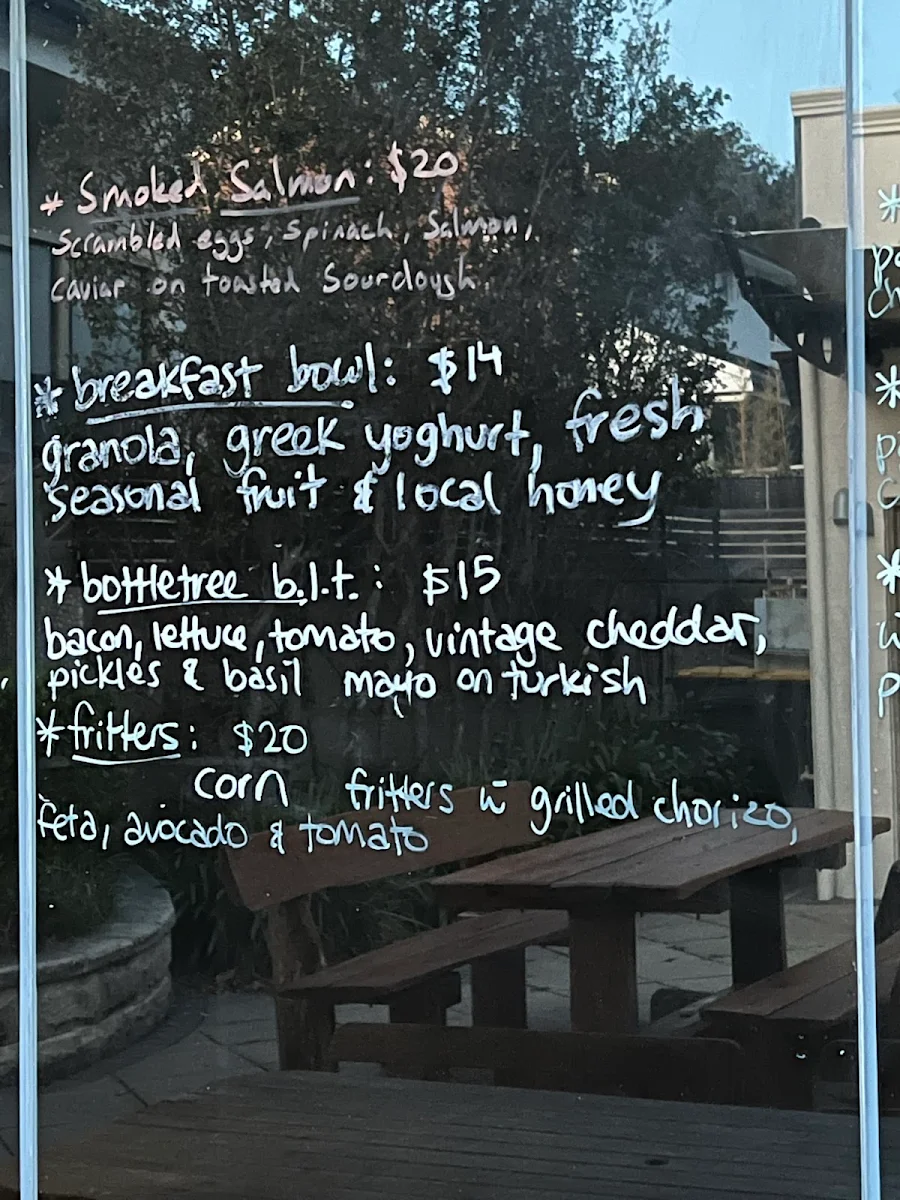 * Smoked Salmon: $20
Scrambled eggs, Spinach, Salmon,
caviar on toasted Sourdough.
* breakfast bowl: $14
granola, greek yoghurt, fresh
seasonal fruit & local honey
* bottletree b.l.t.: $15
bacon, lettuce, tomato, vintage cheddar,
pickles & basil mayo on turkish
* fritters: $20
corn fritters w grilled chorizo,
feta, avocado & tomato